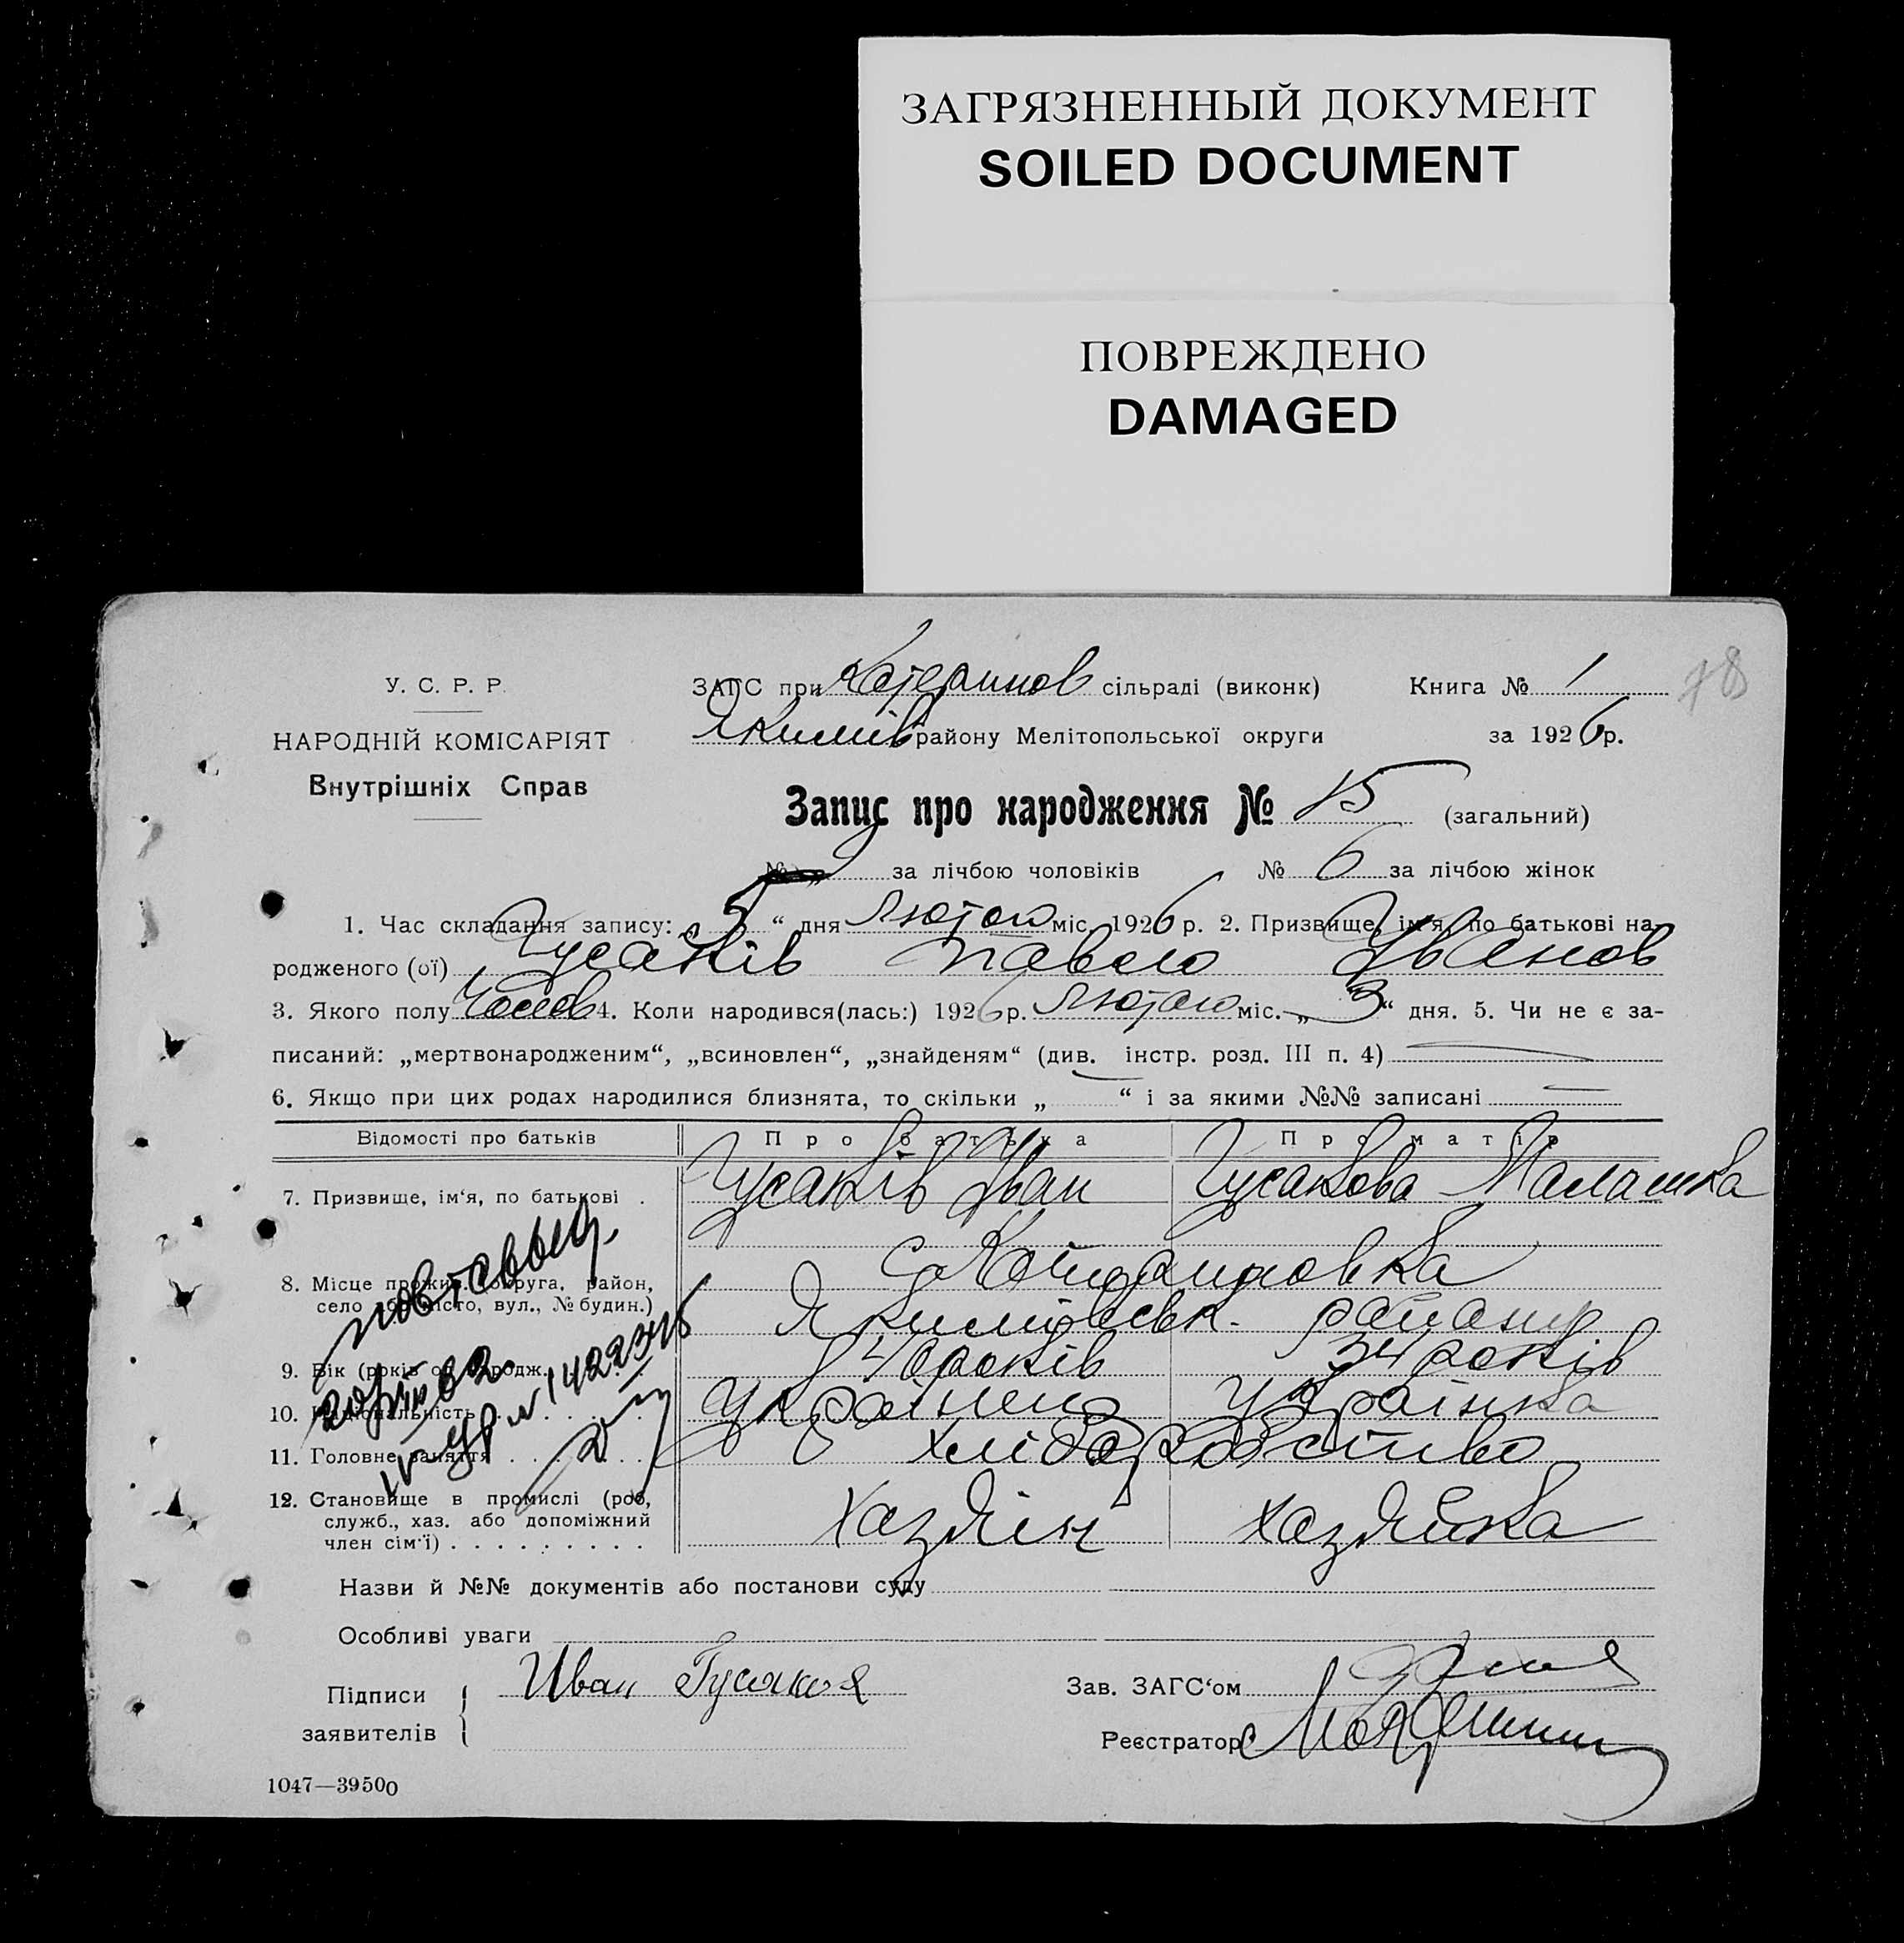 ЗАГРЯЗНЕННЫЙ ДОКУМЕНТ
SOILED DOCUMENT
ПОВРЕЖДЕНО
DAMAGED
78
У. С. Р. Р.
НАРОДНІЙ КОМІСАРІЯТ
Внутрішніх Справ
ЗАГС при Катеринов сільраді (виконк) Книга № 1
Якимів району Мелітопольської округи за 1926 р.
Запис про народження № 15 (загальний)
за лічбою чоловіків № 6 за лічбою жінок
1. Час складання запису: „5“ дня Лютого міс. 1926 р. 2. Призвище, ім'я, по батькові на-
родженого (ої) Гусаків Павло Іванов
3. Якого полу Чолов 4. Коли народився(лась:) 1926 р. Лютого міс. „3“ дня. 5. Чи не є за-
писаний: „мертвонародженим“, „всиновлен“, „знайденям“ (див. інстр. розд. III п. 4)
6. Якщо при цих родах народилися близнята, то скільки „ “ і за якими №№ записані
Відомості про батьків Про батька Про матір
7. Призвище, ім'я, по батькові . Гусаків Іван Гусакова Малашка
8. Місце прожив. (округа, район, село або місто, вул., № будин.) С. Катериновка
Якимівськ. району
9. Вік (років од народж. 40 років 34 років
10. Національність . . . . . українец українка
11. Головне заняття . . . . . хліборобство
12. Становище в промислі (роб, служб., хаз. або допоміжний член сім'ї) . . . . . . . . . хазяїн хазяйка
повт свыд.
Назви й №№ документів або постанови суду
Особливі уваги
Підписи заявителів Иван Гусаков
Зав. ЗАГС'ом
Реєстратор
1047—39500